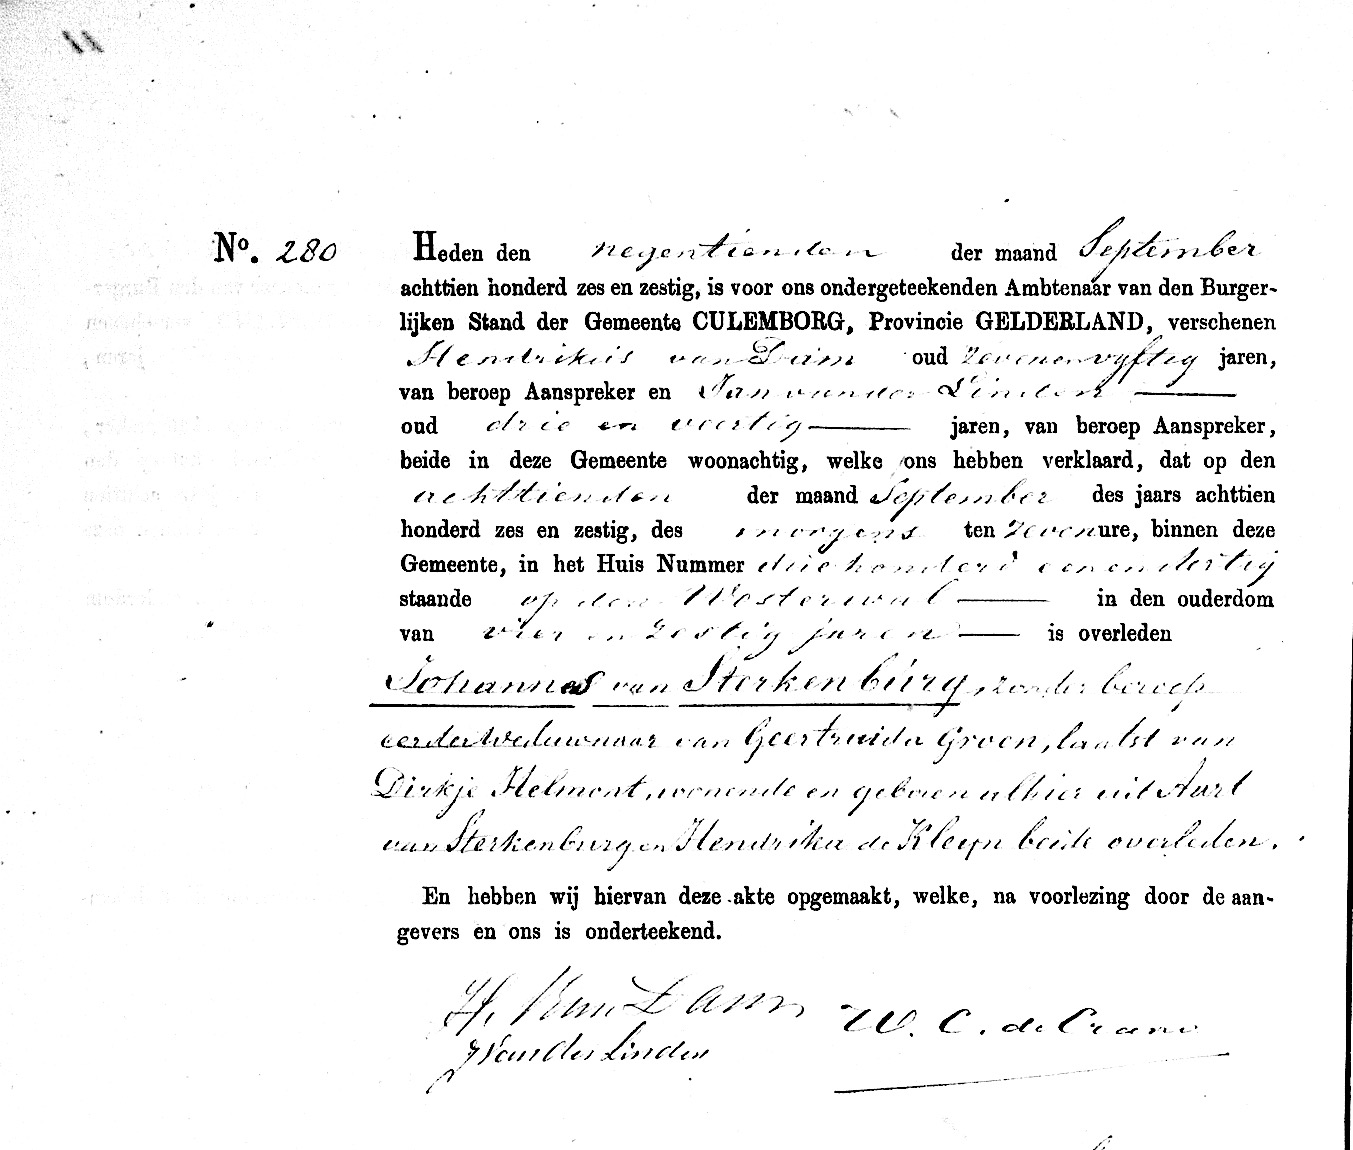 No. 280
Heden den negentienden der maand September
achttien honderd zes en zestig, is voor ons ondergeteekenden Ambtenaar van den Burger-
lijken Stand der Gemeente CULEMBORG, Provincie GELDERLAND, verschenen
Hendrikus van Dam oud zevenenvyftig jaren,
van beroep Aanspreker en Jan van der Linden
oud drie en veertig jaren, van beroep Aanspreker,
beide in deze Gemeente woonachtig, welke ons hebben verklaard, dat op den
achttienden der maand September des jaars achttien
honderd zes en zestig, des morgens ten zevenure, binnen deze
Gemeente, in het Huis Nummer driehonderd eenendertig
staande op den Westerwal in den ouderdom
van vier en zestig jaren is overleden
Johannes van Sterkenburg, zonder beroep
eerder Weduwnaar van Geertruida Groen, laatst van
Dirkje Helmont, wonende en geboren alhier uit Aart
van Sterkenburg en Hendrika de Kleyn beide overleden.
En hebben wij hiervan deze akte opgemaakt, welke, na voorlezing door de aan-
gevers en ons is onderteekend.
H. Van Dam W. C. de Crane
J Van der Linden